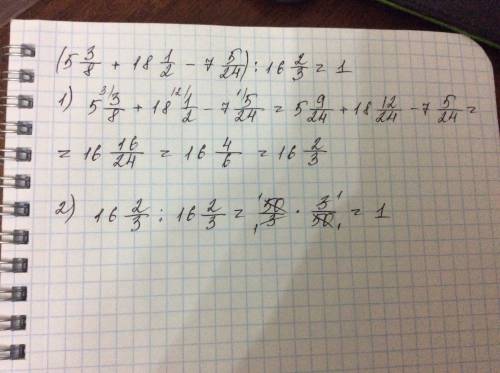 (5 3/8 + 18 1/2 − 7 5/24) : 16 2/3 = 1
1) 5 ³⁾3/8 + 18 ¹²⁾1/2 − 7 ¹⁾5/24 = 5 9/24 + 18 12/24 − 7 5/24 =
= 16 16/24 = 16 4/6 = 16 2/3
2) 16 2/3 : 16 2/3 = 50/3 · 3/50 = 1